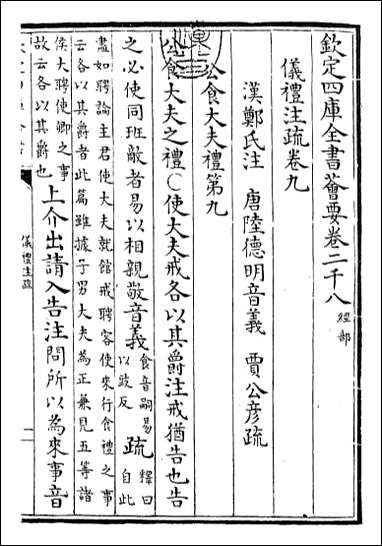 欽定四庫全書薈要卷二千八 經部
儀禮注疏卷九
漢鄭氏注 唐陸德明音義 賈公彥疏
公食大夫禮第九
公食大夫之禮○使大夫戒各以其爵注戒猶告也告
之必使同班敵者易以相親敬音義食音嗣易以豉反疏釋曰自此
盡如聘論主君使大夫就館戒聘客使來行食禮之事
云各以其爵者此篇雖據子男大夫為正兼見五等諸
侯大聘使卿之事故云各以其爵也上介出請入告注問所以為來事音
儀禮注疏
一